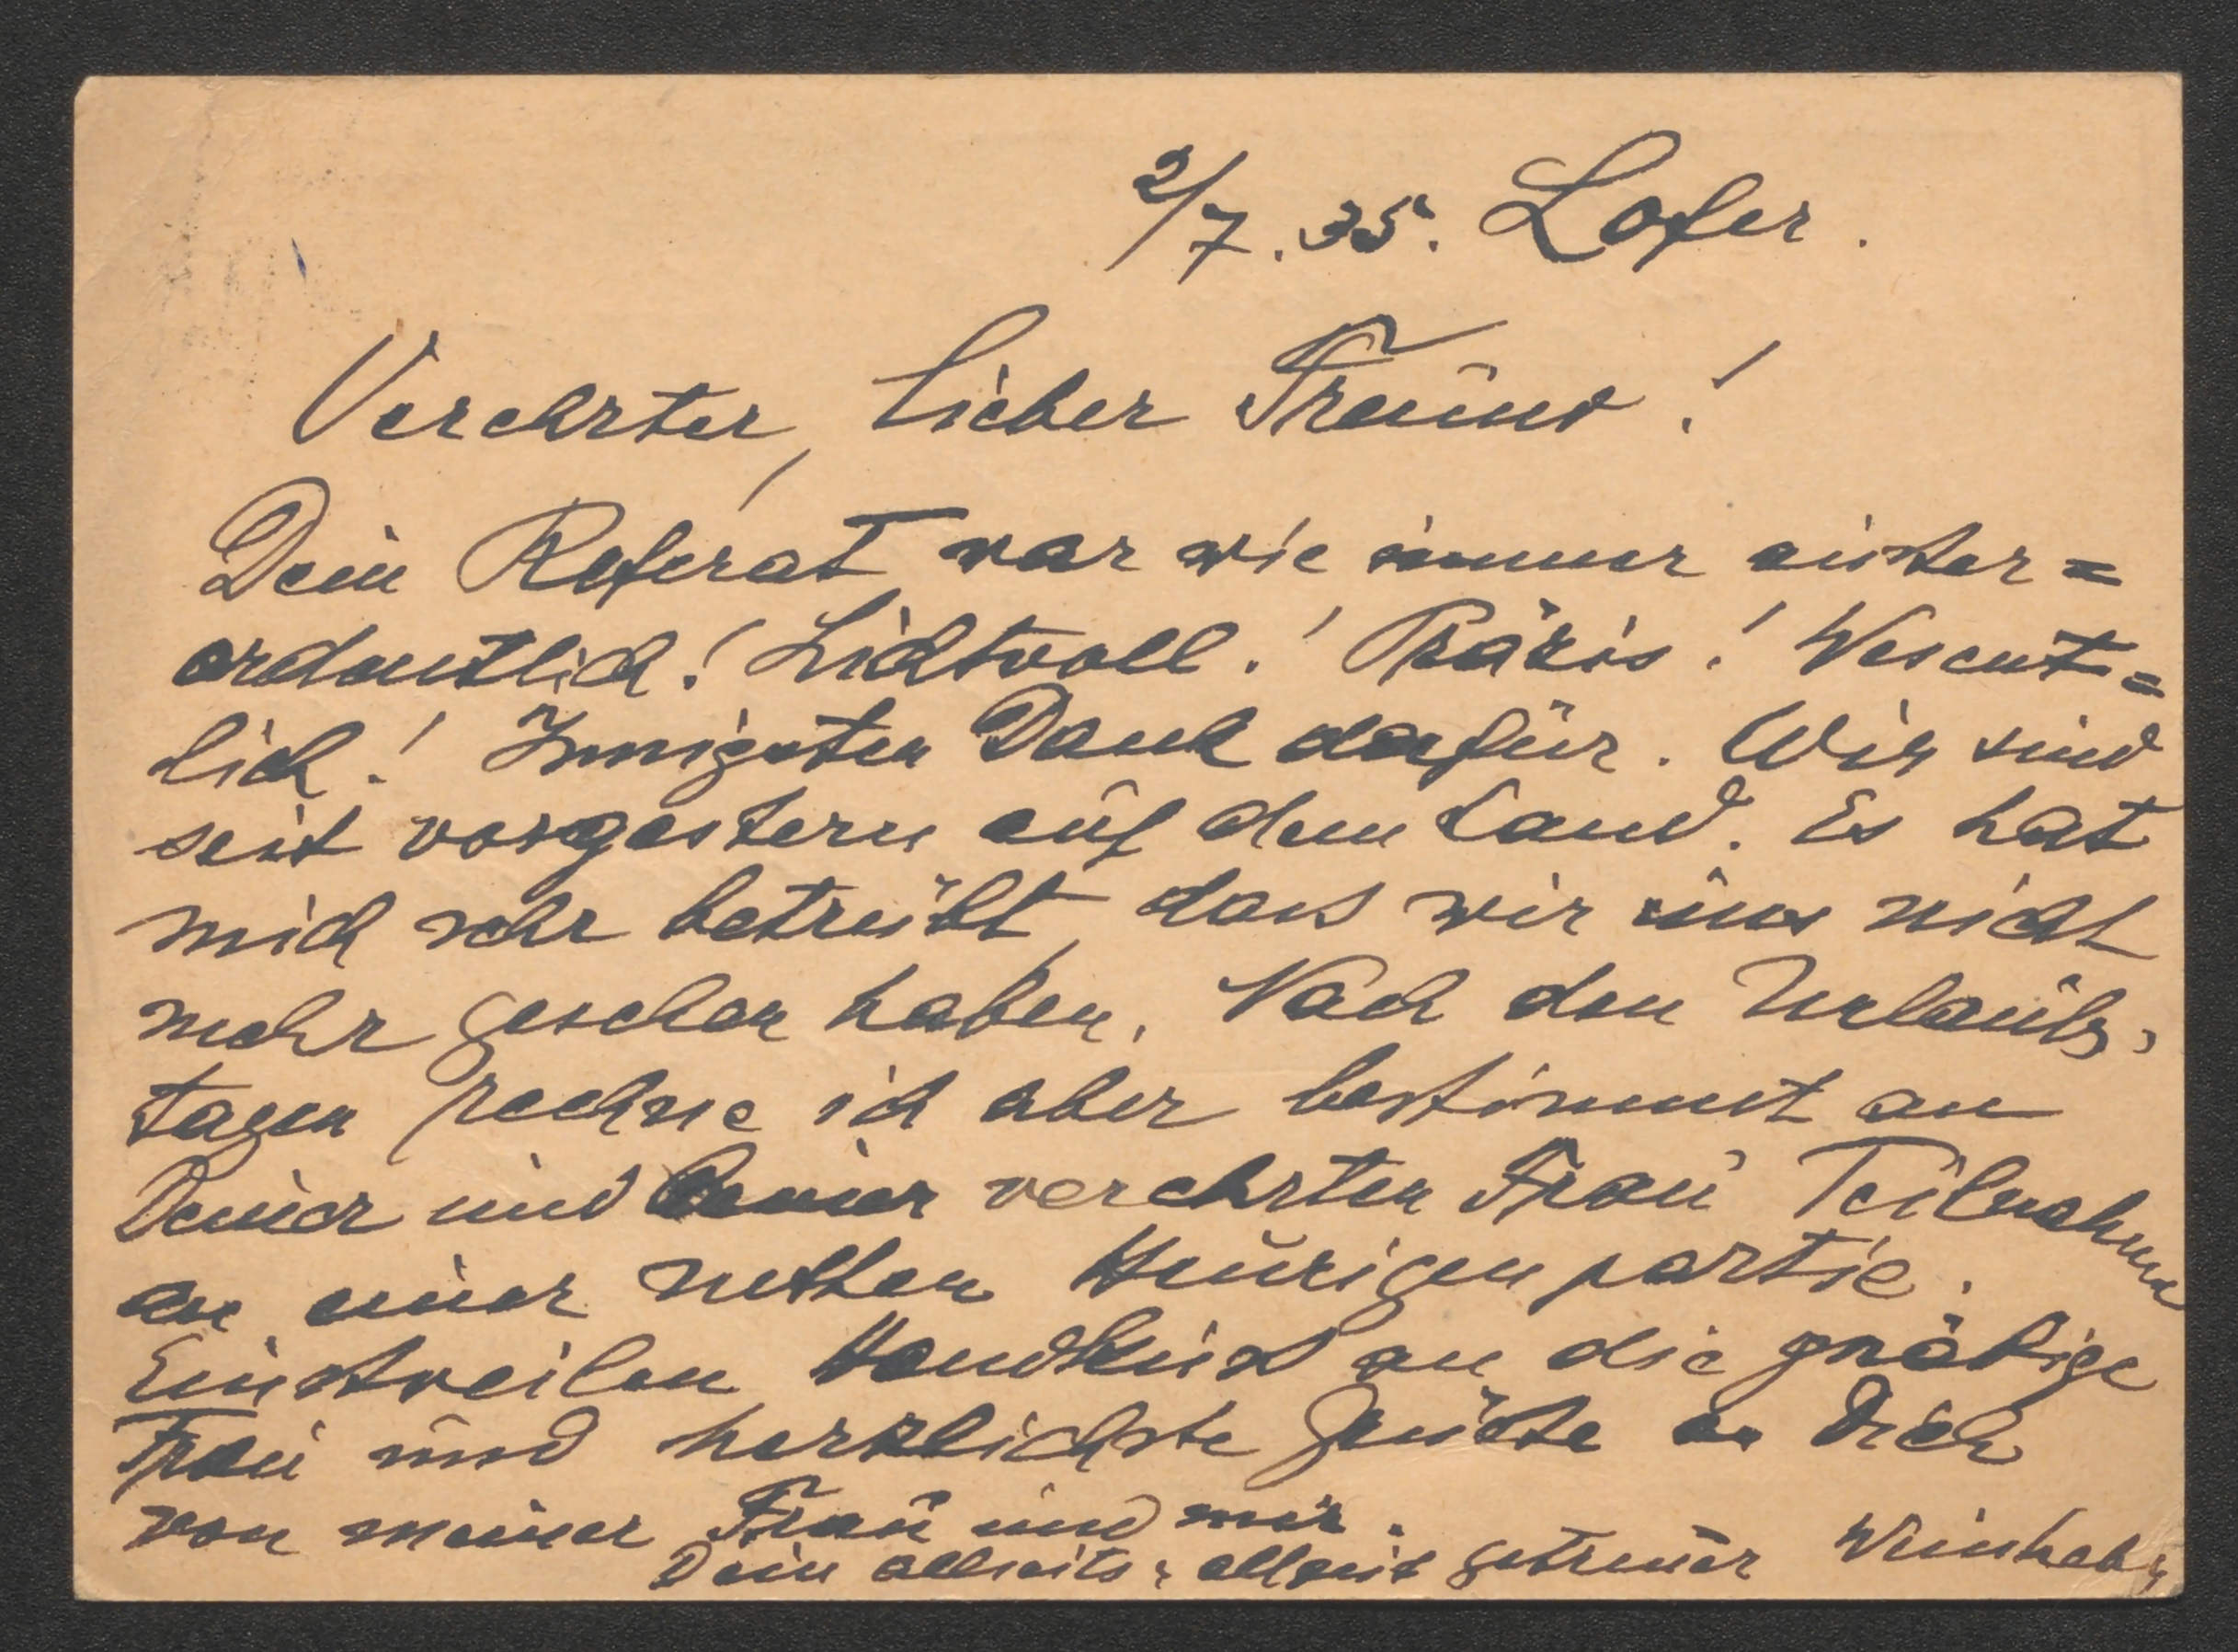 2/7. 35. Lofer.
Verehrter, lieber Freund!
Dein Referat war wie immer außer=
ordentlich! Lichtvoll! Präzis! Wesent=
lich! Innigsten Dank dafür. Wir sind
seit vorgestern auf dem Land. Es hat
mich sehr betrübt, dass wir uns nicht
mehr gesehen haben. Nach den Urlaubs-
tagen rechne ich aber bestimmt an
Deiner und Deiner verehrten Frau Teilnahme
an einer netten Heurigenpartie.
Einstweilen Handkuß an die gnädige
Frau und herzlichste Grüße an Dich
von meiner Frau und mir.
Dein allseits, allzeit getreuer Weinheber